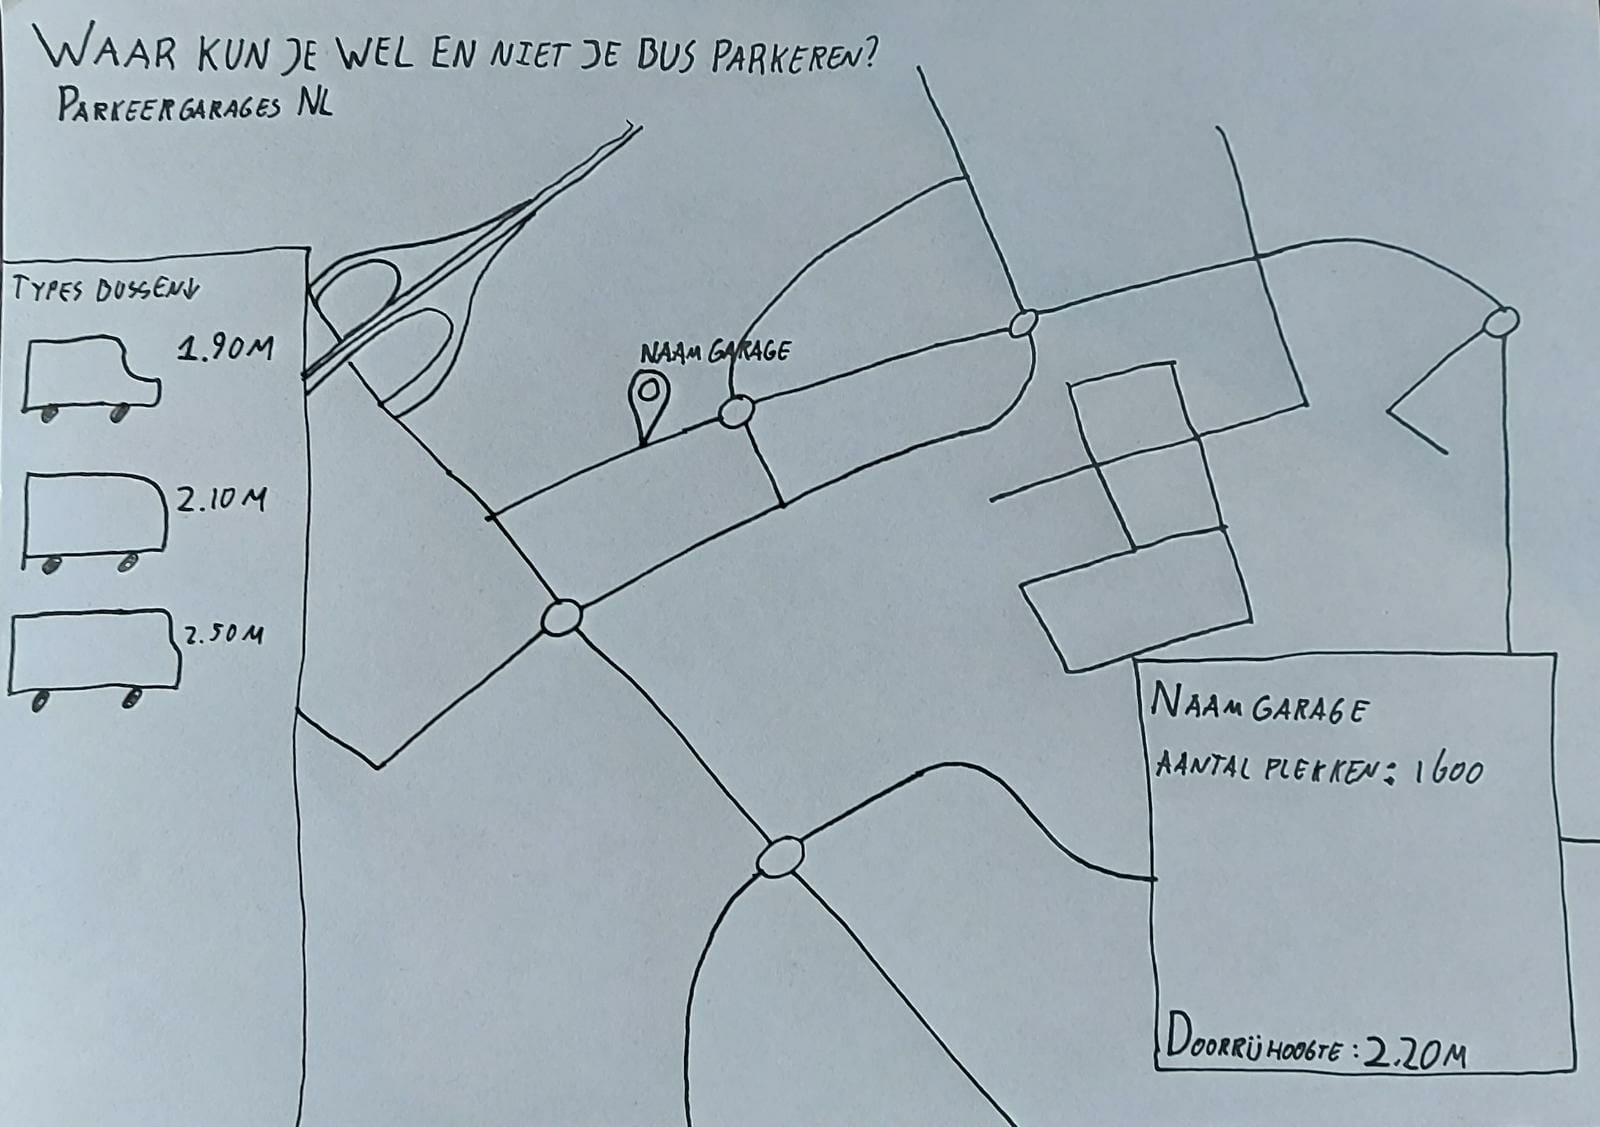 WAAR KUN JE WEL EN NIET JE BUS PARKEREN?
PARKEERGARAGES NL
TYPES BUSSEN↓
1.90M
2.10M
2.50M
NAAM GARAGE
NAAM GARAGE
AANTAL PLEKKEN: 1600
DOORRIJHOOGTE: 2.20M